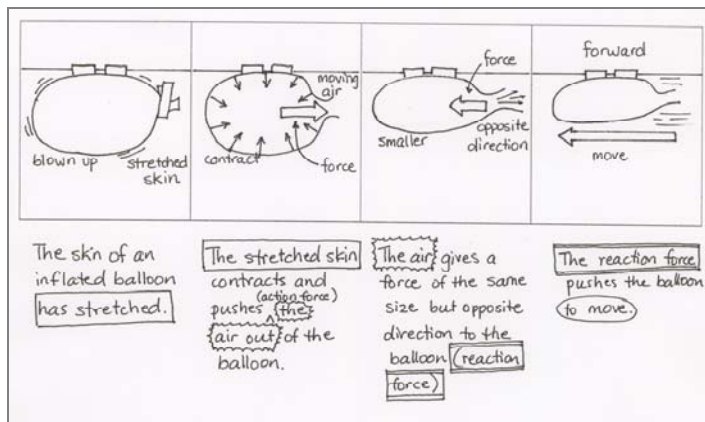 blown up
stretched
skin
moving
air
contract
force
force
smaller
opposite
direction
forward
move
The skin of an
inflated balloon
has stretched.
The stretched skin
contracts and
(action force)
pushes the
air out of the
balloon.
The air gives a
force of the same
size but opposite
direction to the
balloon (reaction
force)
The reaction force
pushes the balloon
to move.